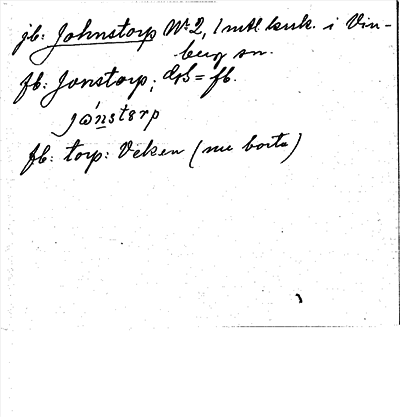 jb: Johnstorp Nº 2, 1 mtl krsk. i Vin-
berg sn.
fb: Jonstorp; = fb.
jɷ́nstɘrp
fb: torp: Veken (nu borta)